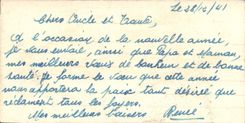 Le 28/12/41
Chers Oncle et Tante,
A l'occasion de la nouvelle année,
je vous envoie, ainsi que Papa et Maman,
mes meilleurs vœux de bonheur et de bonne
santé. Je forme le vœu que cette année
nous apportera la paix tant désirée que
réclament tous les foyers.
Mes meilleurs baisers. Renée